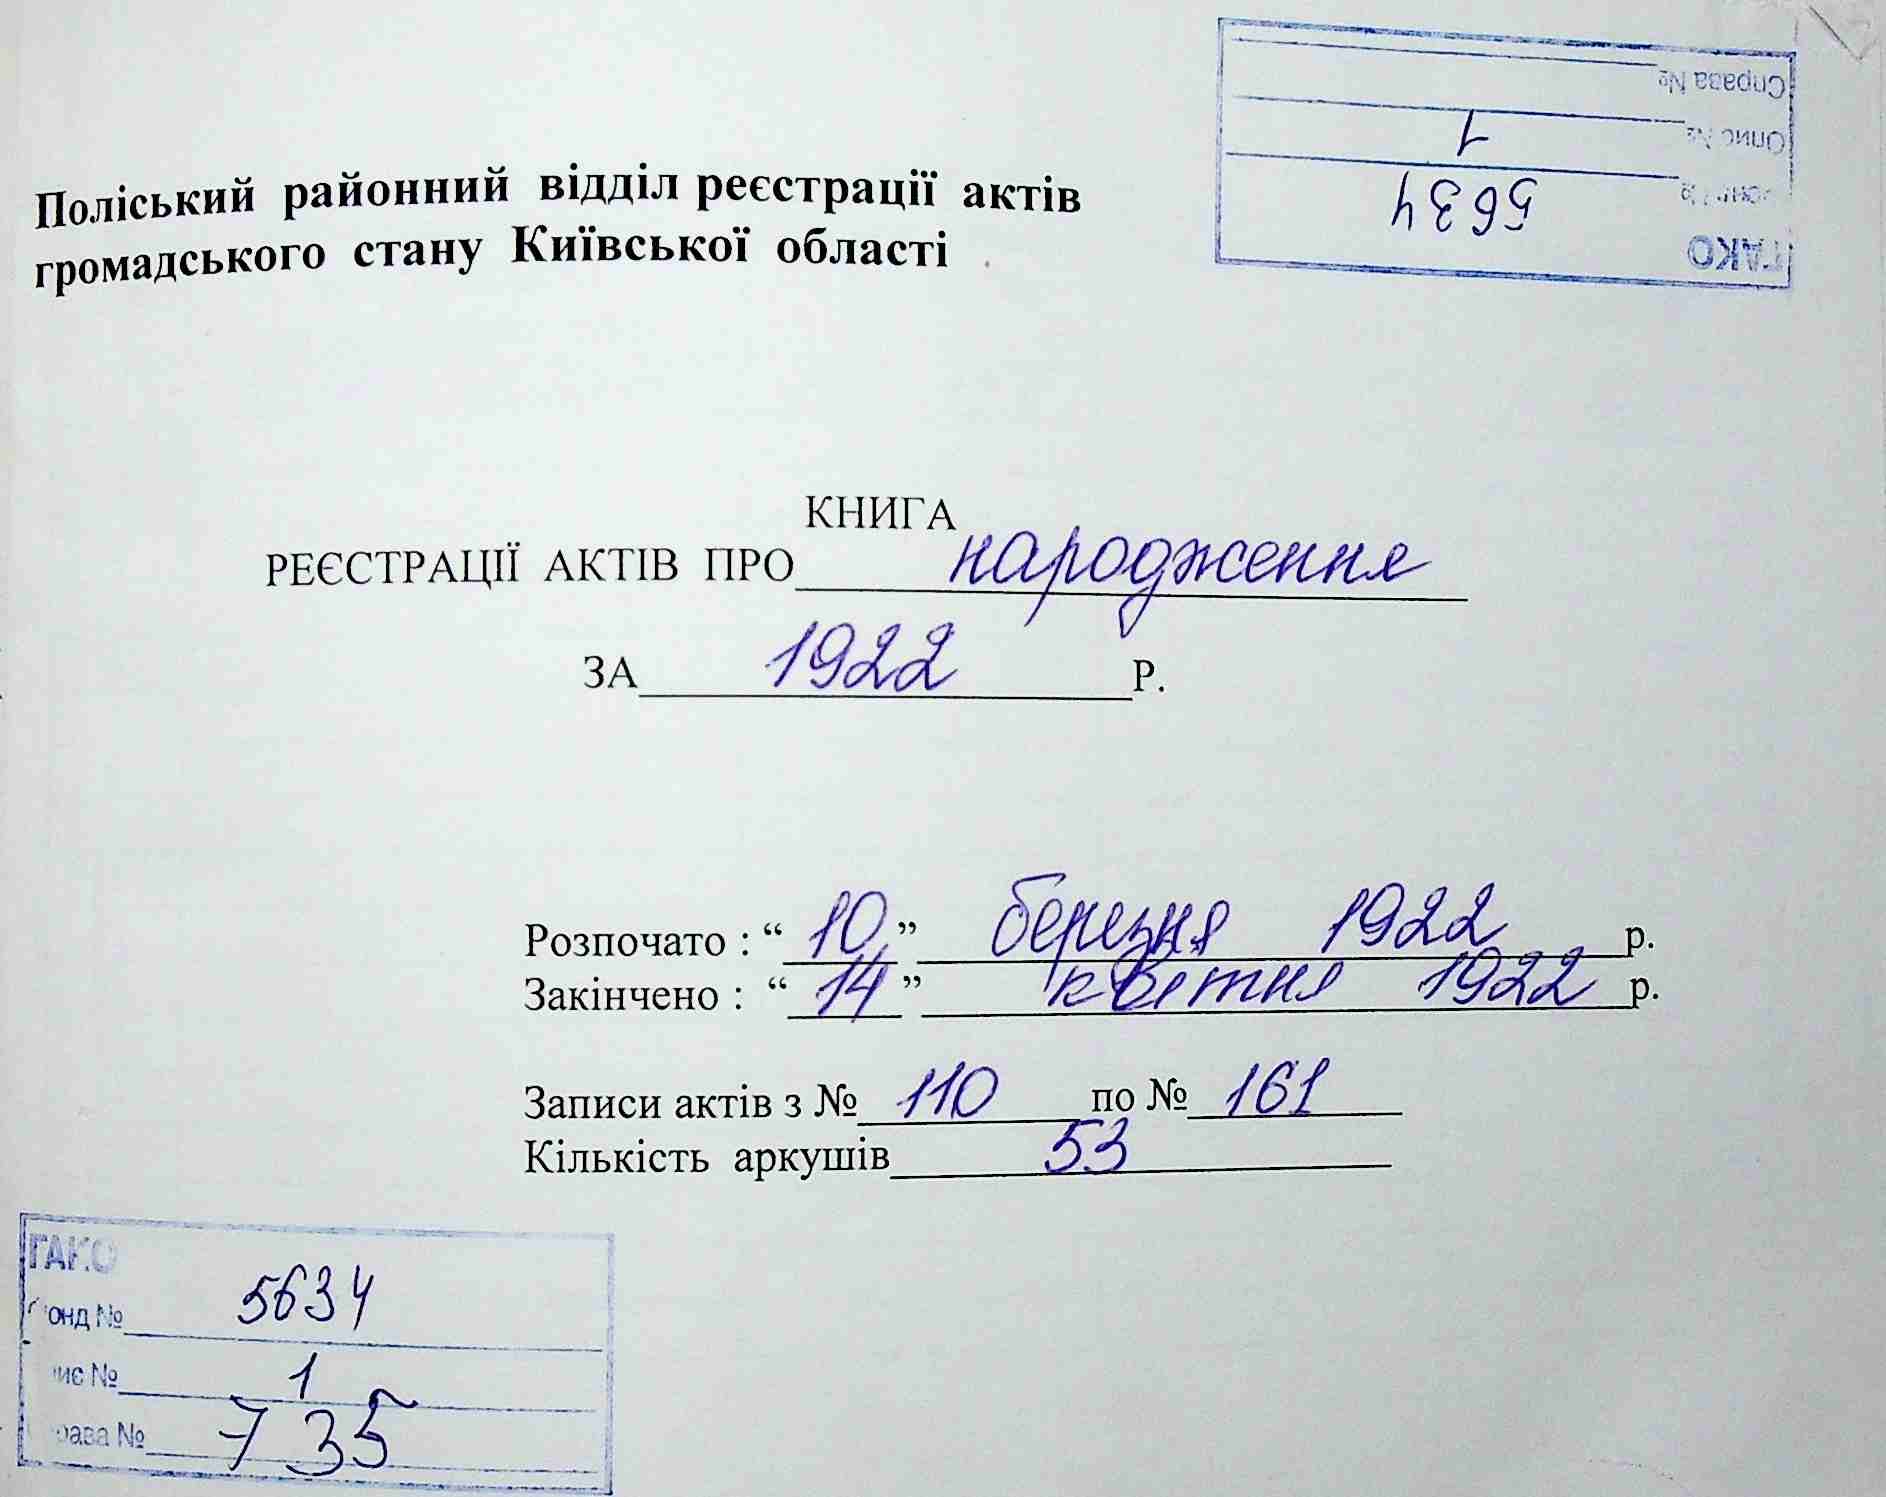 Справа №
Опис № 1
5634
ГАКО
Поліський районний відділ реєстрації актів
громадського стану Київської області
КНИГА
РЕЄСТРАЦІЇ АКТІВ ПРО народження
ЗА 1922 Р.
Розпочато : “ 10 ” березня 1922 р.
Закінчено : “ 14 ” квітня 1922 р.
Записи актів з № 110 по № 161
Кількість аркушів 53
ГАКО
Фонд № 5634
Опис № 1
Справа № 735